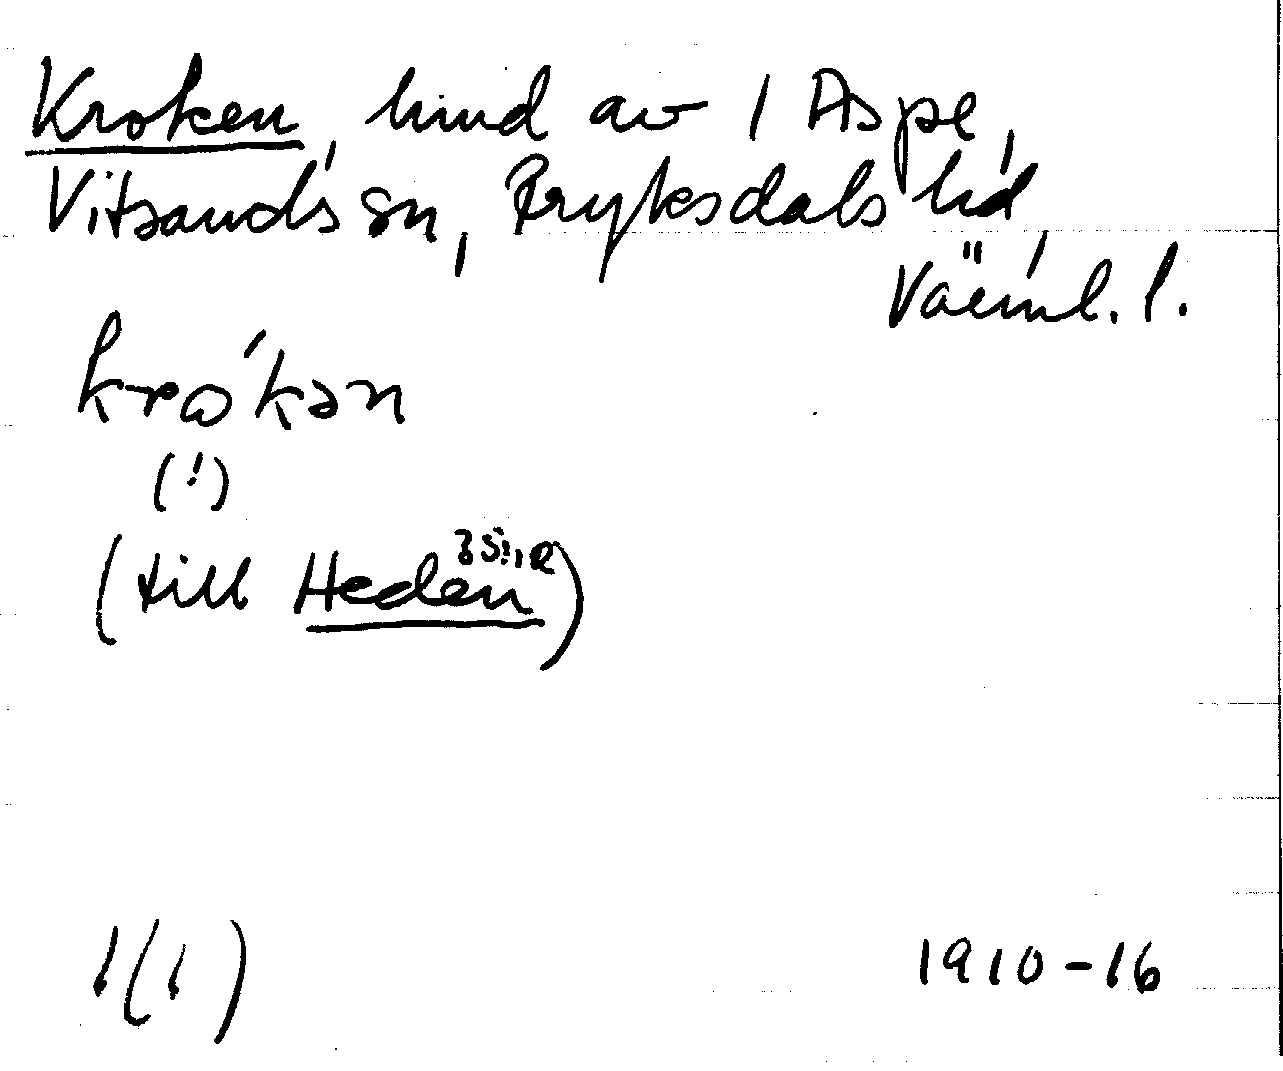 Kroken, hmd av 1 Aspe,
Vitsands sn, Fryksdals hd,
Värml. l.
krω´kən
(!)
(till Heden)
1(1)
1910-16